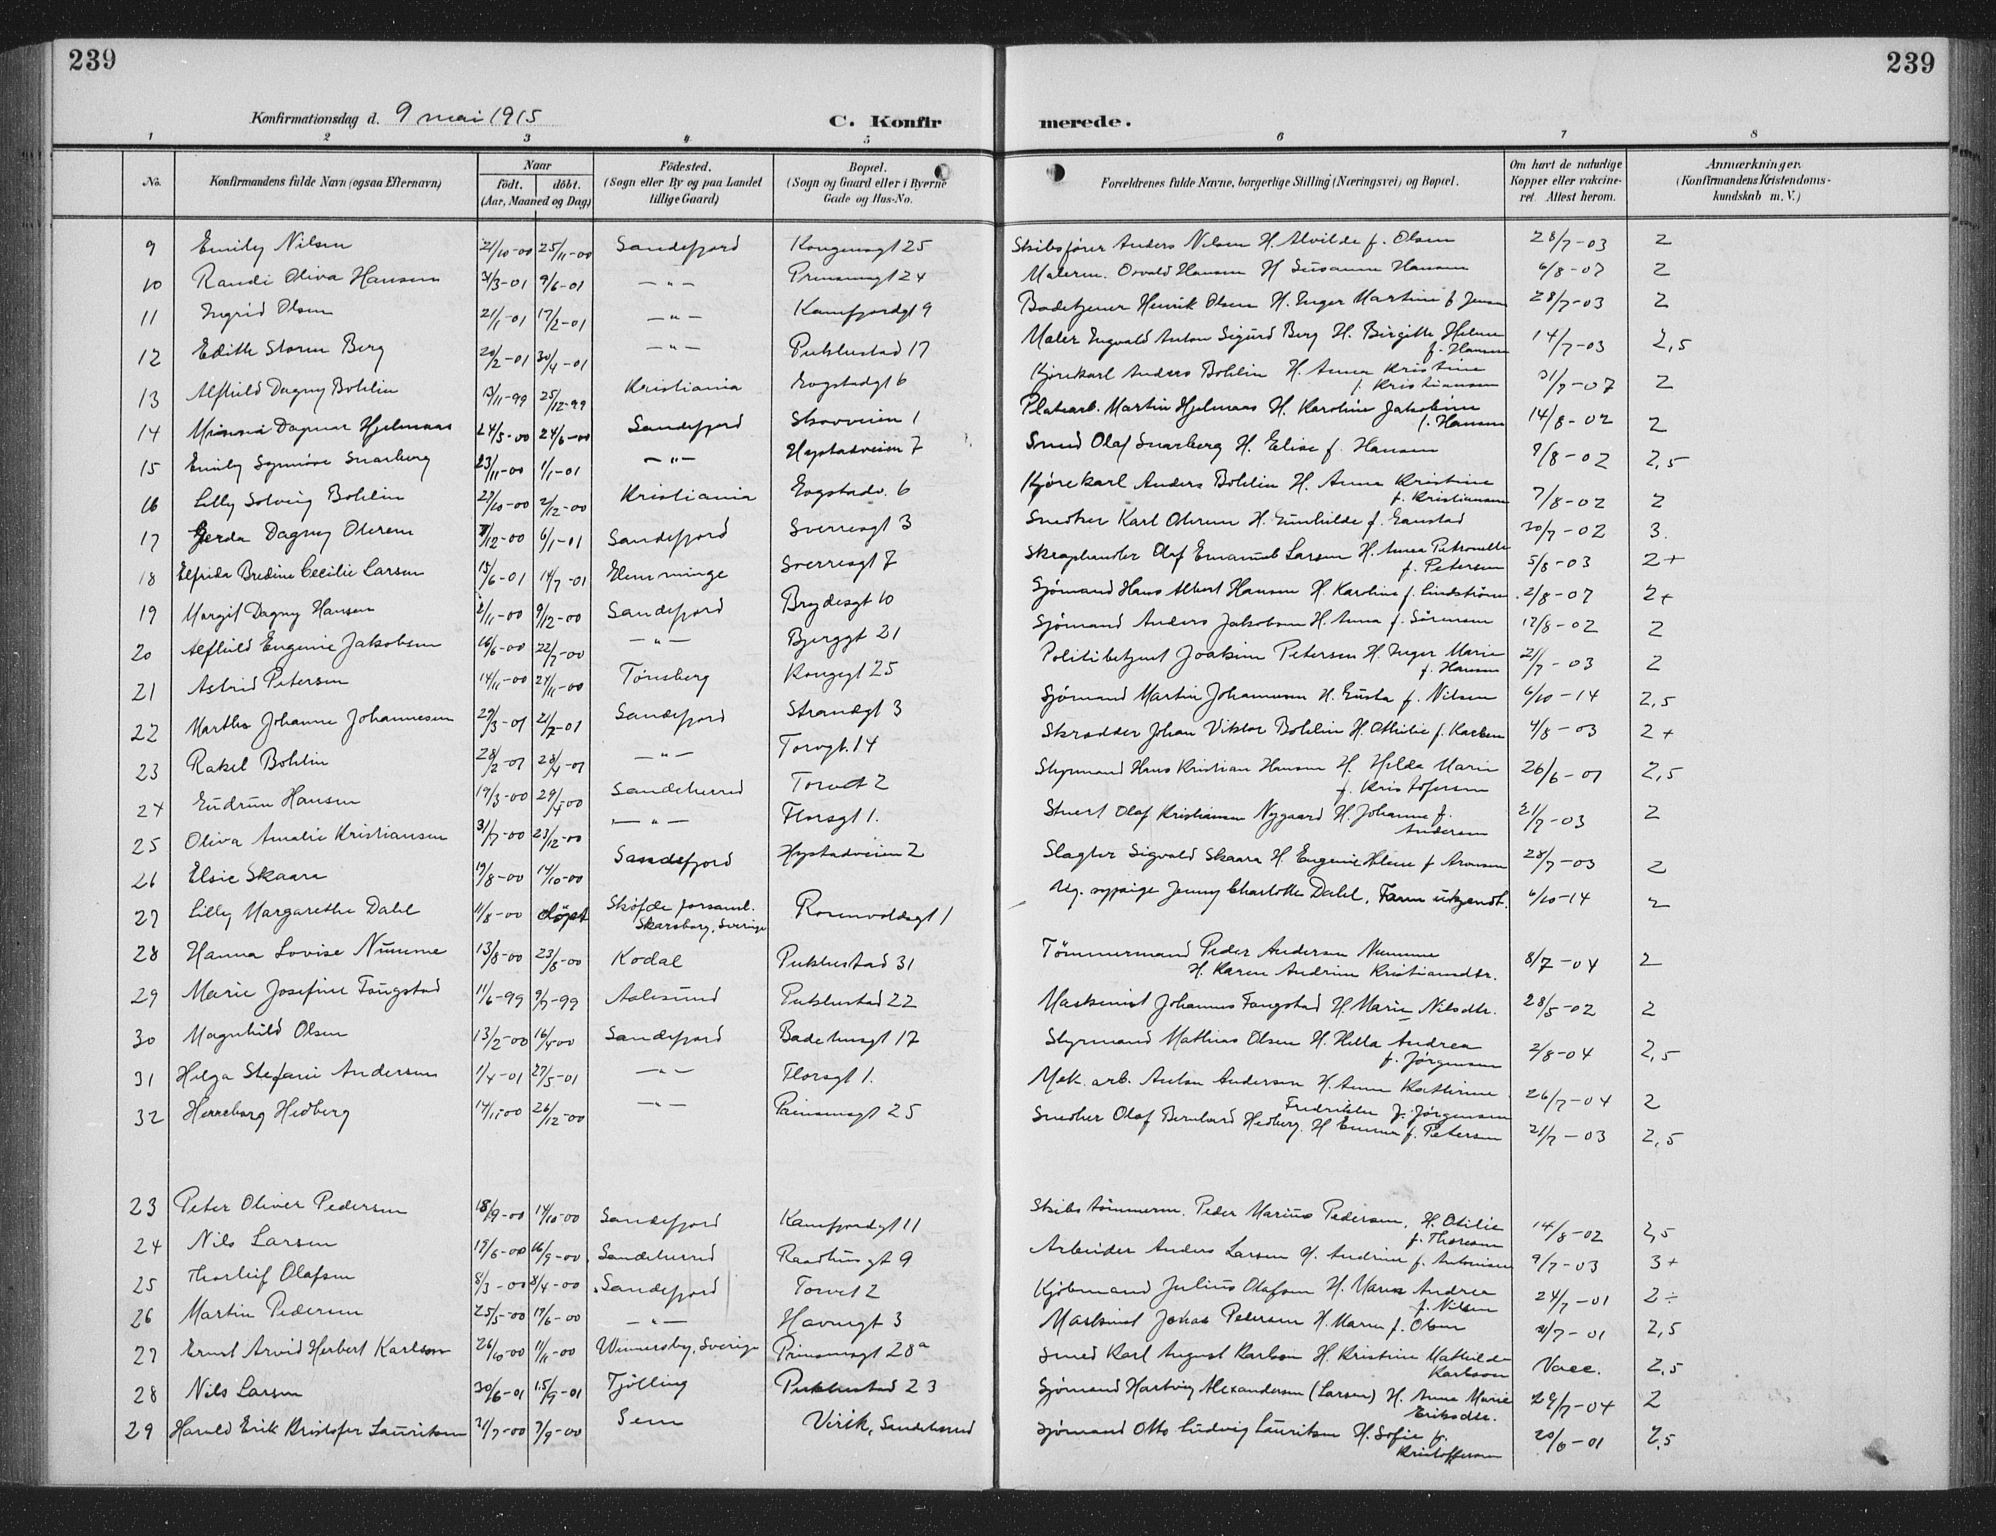 239
239
Konfirmationsdag d. 9 mai 1915
C. Konfirmerede.
1 2 3 4 5 6 7 8
No. Konfirmandens fulde Navn (ogsaa Efternavn) Naar født. døbt. (Aar, Maaned og Dag) Födested. (Sogn eller By og paa Landet tillige Gaard) Bopæl. (Sogn og Gaard eller i Byerne Gade og Hus-No. Forældrenes fulde Navne, borgerlige Stilling (Næringsvei) og Bopæl. Om havt de naturlige Kopper eller vakcineret. Attest herom. Anmærkninger. (Konfirmandens Kristendomskundskab m. V.)
9 Emily Nilsen 21/10-00 25/11-00 Sandefjord Kongensgt 25 Skibsfører Anders Nilsen H. Alvilde f. Olsen 28/7-03 2
10 Randi Oliva Hansen 31/3-01 9/6-01 -"- Prinsensgt 24 Malerm. Osvald Hansen H Susanne Hansen 6/8-07 2
11 Ingrid Olsen 21/1-01 17/2-01 -"- Kamfjordgt 9 Badetjener Henrik Olsen H. Inger Martine f. Jensen 28/7-03 2
12 Edith Storm Berg 20/2-01 30/4-01 -"- Puklustad 17 Maler Ingvald Anton Sigurd Berg H. Birgitte Helene f. Hansen 14/7-03 2,5
13 Alfhild Dagny Bohlin 13/11-99 25/12-99 Kristiania Bogstadgt 6 Kjørekarl Anders Bohlin H. Anna Kristine f. Kristiansen 31/7-07 2
14 Minni Dagmar Hjelmaas 24/5-00 24/6-00 Sandefjord Skovveien 1 Platearb. Martin Hjelmaas H. Karoline Jakobine f. Hansen 14/8-02 2
15 Emily Synnøve Snarberg 23/11-00 1/1-01 -"- Hystadveien 7 Smed Olaf Snarberg H. Elise f. Hansen 9/8-02 2,5
16 Lilly Solveig Bohlin 29/10-00 2/12-00 Kristiania Bogstadv. 6 Kjørekarl Anders Bohlin H. Anna Kristine f. Kristiansen 7/8-02 2
17 Gerda Dagny Olerem 3/12-00 6/1-01 Sandefjord Sverresgt 3 Snedker Karl Olerem H. Gunhilde f. Gaustad 30/7-02 3.
18 Elfrida Bredine Cecilie Larsen 15/6-01 14/7-01 Hemminge Sverresgt 7 Skraphandler Olaf Emanuel Larsen H. Anna Petronelle f. Petersen 5/8-03 2+
19 Margit Dagny Hansen 2/11-00 9/12-00 Sandefjord Brydesgt 10 Sjømand Hans Albert Hansen H. Karoline f. Lindstrøm. 2/8-07 2+
20 Alfhild Eugenie Jakobsen 16/6-00 22/7-00 -"- Bjerggt 21 Sjømand Anders Jakobsen H. Anna f. Sørensen 12/8-02 2
21 Astrid Petersen 14/11-00 24/11-00 Tønsberg Kongegt 25 Politibetjent Joakim Petersen H. Inger Marie f. Hansen 21/7-03 2
22 Martha Johanne Johannesen 29/3-01 21/7-01 Sandefjord Strandgt 3 Sjømand Martin Johannesen H. Gusta f. Nilsen 6/10-14 2,5
23 Rakel Bohlin 28/2-01 28/4-01 -"- Torvgt. 14 Skrædder Johan Viktor Bohlin H. Othilie f. Karlsen 4/8-03 2+
24 Gudrun Hansen 19/3-00 29/4-00 Sandeherred Torvet 2 Styrmand Hans Kristian Hansen H. Hilda Marie f. Kristofersen 26/6-01 2,5
25 Oliva Amalie Kristiansen 31/7-00 23/12-00 -"- Thorsgt 1. Stuert Olaf Kristiansen Nygaard H. Johanne f. Andersen 21/7-03 2
26 Elsie Skaara 19/8-00 14/10-00 Sandefjord Hystadveien 2 Slagter Sigvald Skaara H Eugenie Helene f. Aronsen 28/7-03 2
27 Lilly Margarethe Dahl 11/8-00 døpt Skøfde forsaml. Skarsborg, Sverige Rosenvoldsgt 1 Ug. sypige Jenny Charlotte Dahl, Faren ukjendt. 6/10-14 2
28 Hanna Lovise Numme 13/8-00 23/8-00 Kodal Puklustad 31 Tømmermand Peder Andersen Numme H. Karen Andrine Kristiansdtr. 8/7-04 2
29 Marie Josefine Fangstad 11/6-99 9/7-99 Aalesund Puklustad 22 Maskinist Johannes Fangstad H. Marie Nilsdtr. 28/5-02 2
30 Magnhild Olsen 13/2-00 16/4-00 Sandefjord Badehusgt 17 Styrmand Mathias Olsen H. Hella Andrea f. Jørgensen 2/8-04 2,5
31 Helga Stefanie Andersen 1/4-01 27/5-01 -"- Thorsgt 1. Mek. arb. Anton Andersen H. Anna Kathrine Fredrikke f. Jørgensen 26/7-04 2
32 Herreborg Hedberg 14/11-00 26/12-00 -"- Prinsensgt 25 Snedker Olaf Bernhard Hedberg. H Emma f. Petersen 21/7-03 2,5
23 Peter Oliver Pedersen 18/9-00 14/10-00 Sandefjord Kamfjordgt 11 Skibstømmerm. Peder Marius Pedersen, H. Otilie f. Thoresen 14/8-02 2,5
24 Nils Larsen 19/6-00 16/9-00 Sandeherred Raadhusgt 9 Arbeider Anders Larsen H. Andrine f. Antonisen 9/7-03 3+
25 Thorleif Olafsen 8/3-00 8/4-00 Sandefjord Torvet 2 Kjøbmand Julius Olafsen H. Maren Andrea f. Nilsen 24/7-01 2÷
26 Martin Pedersen 25/5-00 17/6-00 -"- Havnegt 3 Maskinist Johas Petersen H. Maren f. Olsen 21/7-01 2,5
27 Ernst Arvid Herbert Karlson 26/10-00 11/11-00 Wenersby, Sverige Prinsensgt 28a Smed Karl August Karlson H. Kristine Mathilde Karlsson Vacc. 2,5
28 Nils Larsen 30/6-01 15/9-01 Tjølling Puklustad 23 Sjømand Hartvig Alexandersen (Larsen) H. Anna Marie Eriksdtr. 29/7-04 2
29 Harald Erik Kristofer Lauritsen 21/7-00 7/9-00 Sem Virik, Sandeherred Sjømand Otto Ludvig Lauritsen H. Sofie f. Kristoffersen 20/6-01 2,5